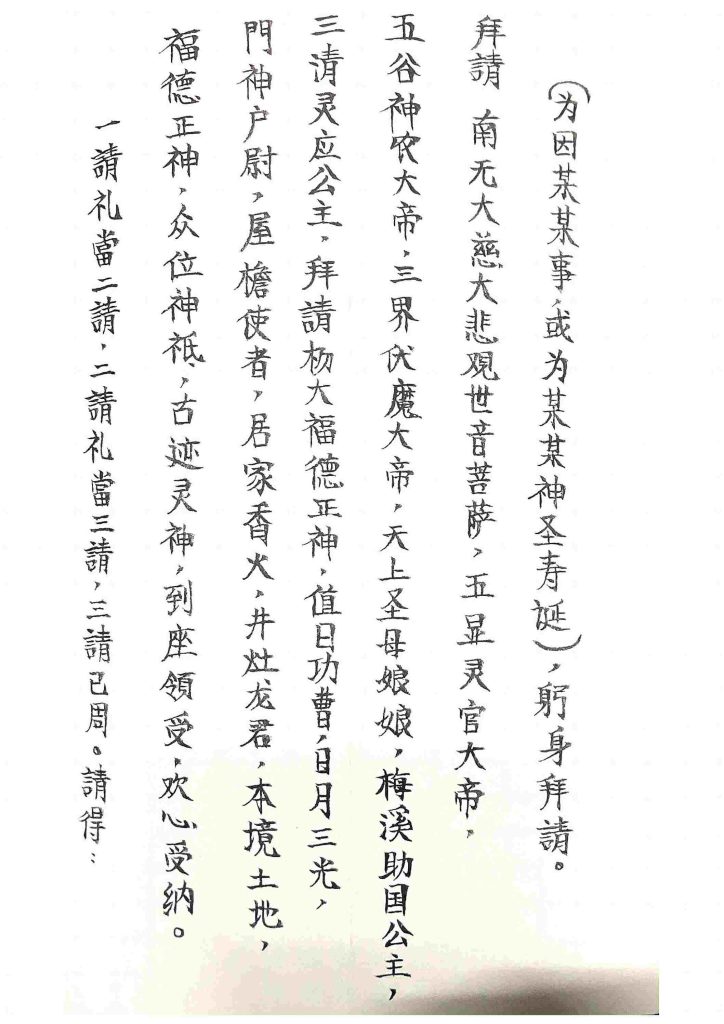 (为因某某事，或为某某神圣寿诞)，躬身拜請。
拜請 南无大慈大悲观世音菩萨，五显灵官大帝，
五谷神农大帝，三界伏魔大帝，天上圣母娘娘，梅溪助国公主，
三清灵应公主，拜請杨大福德正神，值日功曹，日月三光，
門神户尉，屋檐使者，居家香火，井灶龙君，本境土地，
福德正神，众位神祗，古迹灵神，到座領受，欢心受纳。
一請礼當二請，二請礼當三請，三請已周。請得：